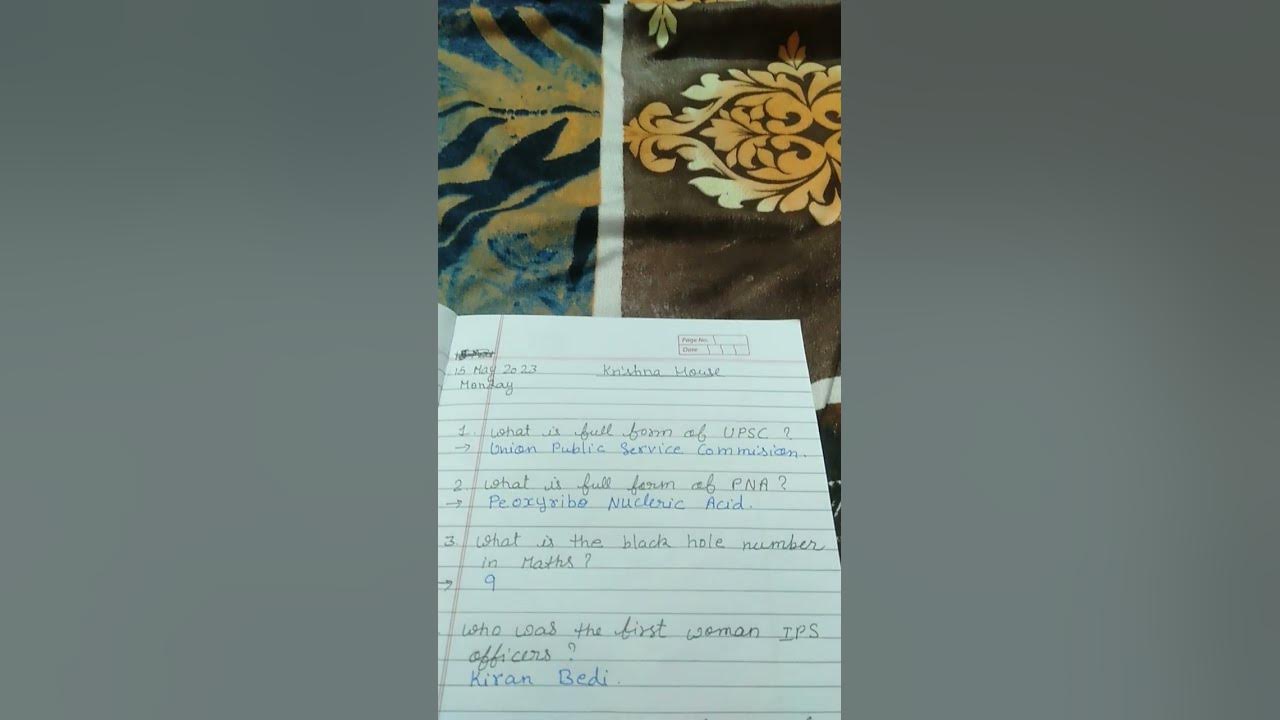 Page No.
Date
15 May 2023
Krishna House
Monday
1. What is full form of UPSC ?
→ Union Public Service Commision.
2. What is full form of PNA ?
→ Peoxyribo Nucleric Acid.
3. What is the black hole number
in Maths ?
→ 9
who was the first woman IPS
officers ?
Kiran Bedi.